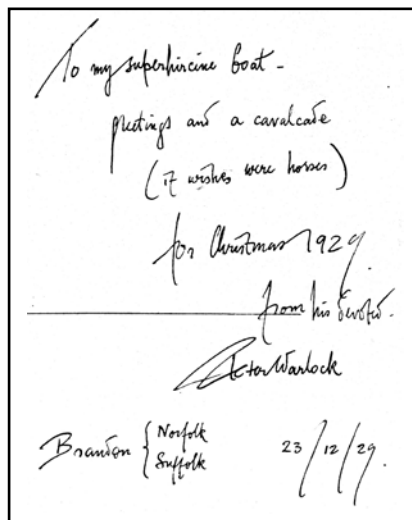 To my superhircine Goat -
greetings and a cavalcade
(if wishes were horses)
for Christmas 1929.
from his devoted.
Peter Warlock
Brandon { Norfolk
Suffolk
23/12/29.